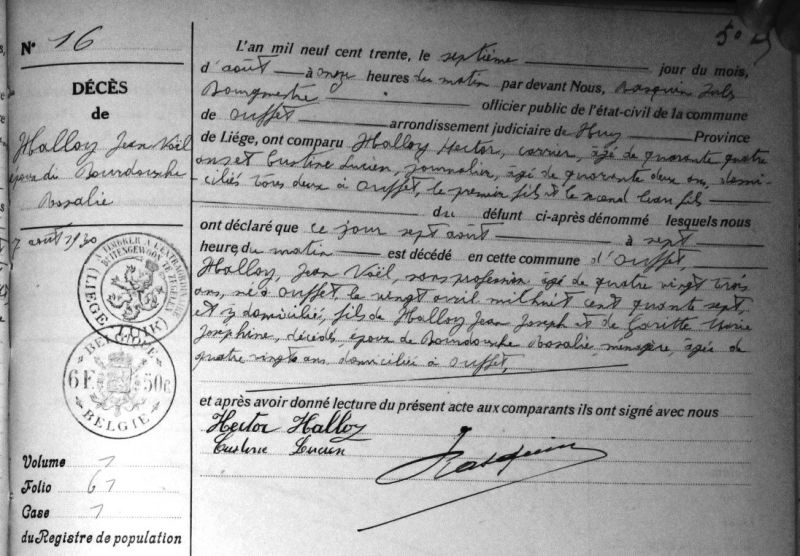 N° 16
DÉCÈS
de
Halloy Jean Noël
époux de Bourdouxhe
Rosalie
7 août 1930
A TIMBRER A L'EXTRAORDINAIRE
BUITENGEWOON TE ZEGELEN
(LIEGE - LUIK)
BELGIQUE
6 F. 50 c
BELGIE
Volume 1
Folio 61
Case 1
du Registre de population
50
L'an mil neuf cent trente, le septième jour du mois,
d'août à onze heures du matin par devant Nous, Rasquin Jules
Bourgmestre officier public de l'état-civil de la commune
de Ouffet, arrondissement judiciaire de Huy Province
de Liége, ont comparu Halloy Hector, carrier, âgé de quarante quatre
ans et Custine Lucien, journalier, âgé de quarante deux ans, domi-
ciliés tous deux à Ouffet, le premier fils et le second beau fils
du défunt ci-après dénommé lesquels nous
ont déclaré que ce jour sept août à sept
heure, du matin est décédé en cette commune d'Ouffet,
Halloy, Jean Noël, sans profession âgé de quatre vingt trois
ans, né à Ouffet, le vingt avril mil huit cent quarante sept,
et y domicilié, fils de Halloy Jean Joseph et de Maria
Joséphine, décédés, époux de Bourdouxhe Rosalie, ménagère, âgée de
quatre vingts ans domiciliée à Ouffet,
et après avoir donné lecture du présent acte aux comparants ils ont signé avec nous
Hector Halloy
Custine Lucien
Rasquin